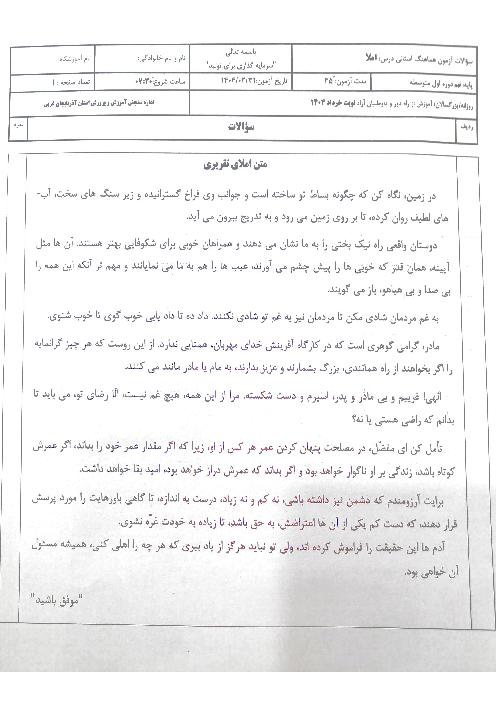 باسمه تعالی
سؤالات آزمون هماهنگ استانی درس: املا
"سرمایه گذاری برای تولید"
نام و نام خانوادگی:
نام آموزشگاه:
پایه: نهم دوره اول متوسطه
مدت آزمون: ۴۵
تاریخ آزمون: ۱۴۰۴/۰۲/۳۱
ساعت شروع: ۰۷:۳۰
تعداد صفحه: ۱
روزانه، بزرگسالان، آموزش از راه دور و داوطلبان آزاد نوبت خرداد ۱۴۰۴
اداره سنجش آموزش و پرورش استان آذربایجان غربی
ردیف
سؤالات
نمره
متن املای تقریری
در زمین، نگاه کن که چگونه بساط تو ساخته است و جوانب وی فراخ گسترانیده و زیر سنگ های سخت، آب-
های لطیف روان کرده، تا بر روی زمین می رود و به تدریج بیرون می آید.
دوستان واقعی راه نیک بختی را به ما نشان می دهند و همراهان خوبی برای شکوفایی بهتر هستند. آن ها مثل
آیینه، همان قدر که خوبی ها را پیش چشم می آورند، عیب ها را هم به ما می نمایانند و مهم تر آنکه این همه را
بی صدا و بی هیاهو، باز می گویند.
به غم مردمان شادی مکن تا مردمان نیز به غم تو شادی نکنند. داد ده تا داد یابی خوب گوی تا خوب شنوی.
مادر، گرامی گوهری است که در کارگاه آفرینش خدای مهربان، همتایی ندارد. از این روست که هر چیز گرانمایه
را اگر بخواهند از راه همانندی، بزرگ بشمارند و عزیز بدارند، به مام یا مادر مانند می کنند.
الهی! غریبم و بی مادر و پدر، اسیرم و دست شکسته. مرا از این همه، هیچ غم نیست، الّا رضای تو، می باید تا
بدانم که راضی هستی یا نه؟
تأمل کن ای مفضّل، در مصلحت پنهان کردن عمر هر کس از او، زیرا که اگر مقدار عمر خود را بداند، اگر عمرش
کوتاه باشد، زندگی بر او ناگوار خواهد بود و اگر بداند که عمرش دراز خواهد بود، امید بقا خواهد داشت.
برایت آرزومندم که دشمن نیز داشته باشی، نه کم و نه زیاد، درست به اندازه، تا گاهی باورهایت را مورد پرسش
قرار دهند، که دست کم یکی از آن ها اعتراضش، به حق باشد، تا زیاده به خودت غرّه نشوی.
آدم ها این حقیقت را فراموش کرده اند، ولی تو نباید هرگز از یاد ببری که هر چه را اهلی کنی، همیشه مسئول
آن خواهی بود.
"موفق باشید"